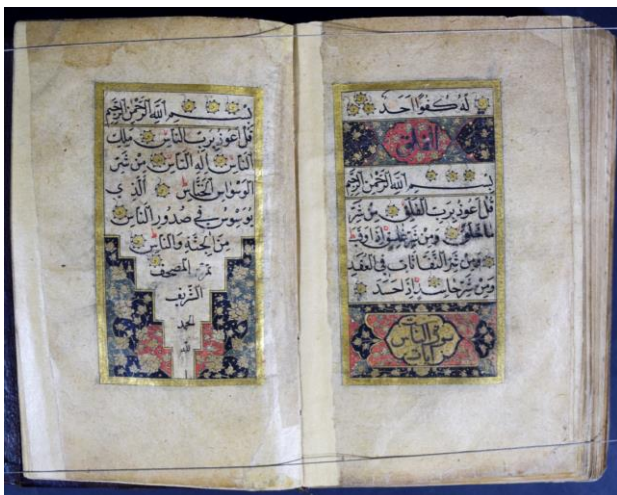 لَهُ كُفُوًا اَحَدٌ
الفلق
بِسْمِ اللهِ الرَّحْمٰنِ الرَّحِيمِ
قُلْ اَعُوذُ بِرَبِّ الْفَلَقِ مِنْ شَرِّ
مَا خَلَقَ وَمِنْ شَرِّ غَاسِقٍ اِذَا وَقَبَ
وَمِنْ شَرِّ النَّفَّاثَاتِ فِي الْعُقَدِ
وَمِنْ شَرِّ حَاسِدٍ اِذَا حَسَدَ
سورة الناس
آيات
بِسْمِ اللهِ الرَّحْمٰنِ الرَّحِيمِ
قُلْ اَعُوذُ بِرَبِّ النَّاسِ مَلِكِ
النَّاسِ اِلٰهِ النَّاسِ مِنْ شَرِّ
الْوَسْوَاسِ الْخَنَّاسِ الَّذِي
يُوَسْوِسُ فِي صُدُورِ النَّاسِ
مِنَ الْجِنَّةِ وَالنَّاسِ
المصحف
الشريف
الحمد
لله